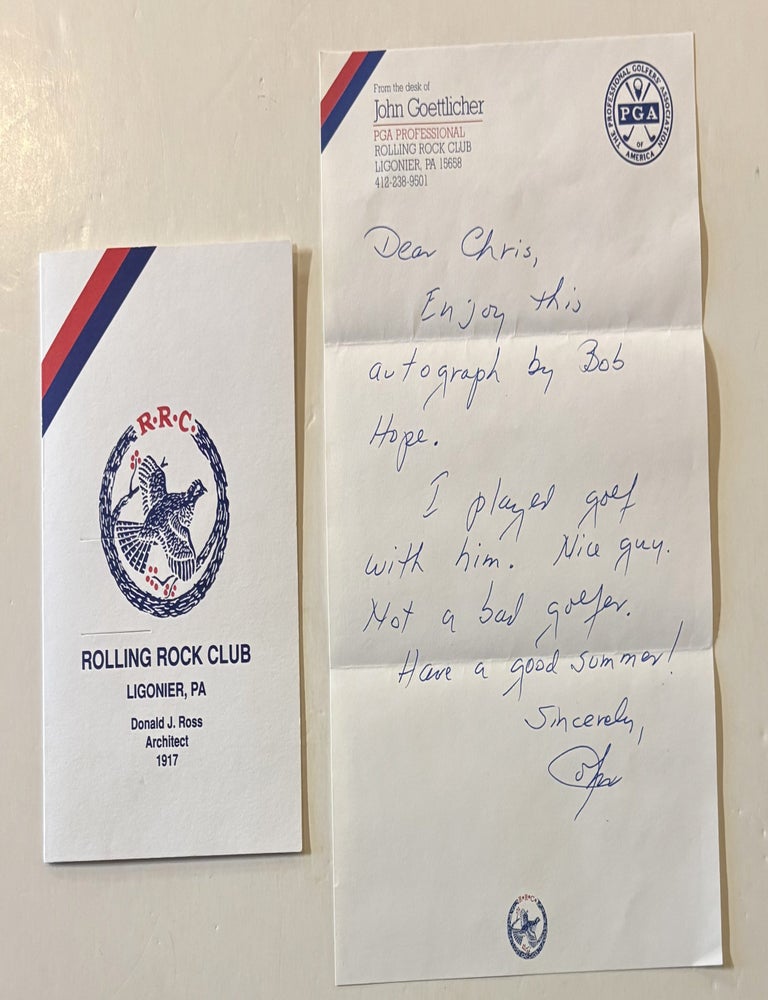 R.R.C.
ROLLING ROCK CLUB
LIGONIER, PA
Donald J. Ross
Architect
1917
From the desk of
John Goettlicher
PGA PROFESSIONAL
ROLLING ROCK CLUB
LIGONIER, PA 15658
412-238-9501
THE PROFESSIONAL GOLFERS' ASSOCIATION
PGA
OF
AMERICA
Dear Chris,
Enjoy this
autograph by Bob
Hope.
I played golf
with him. Nice guy.
Not a bad golfer.
Have a good summer!
Sincerely,
R.R.C.